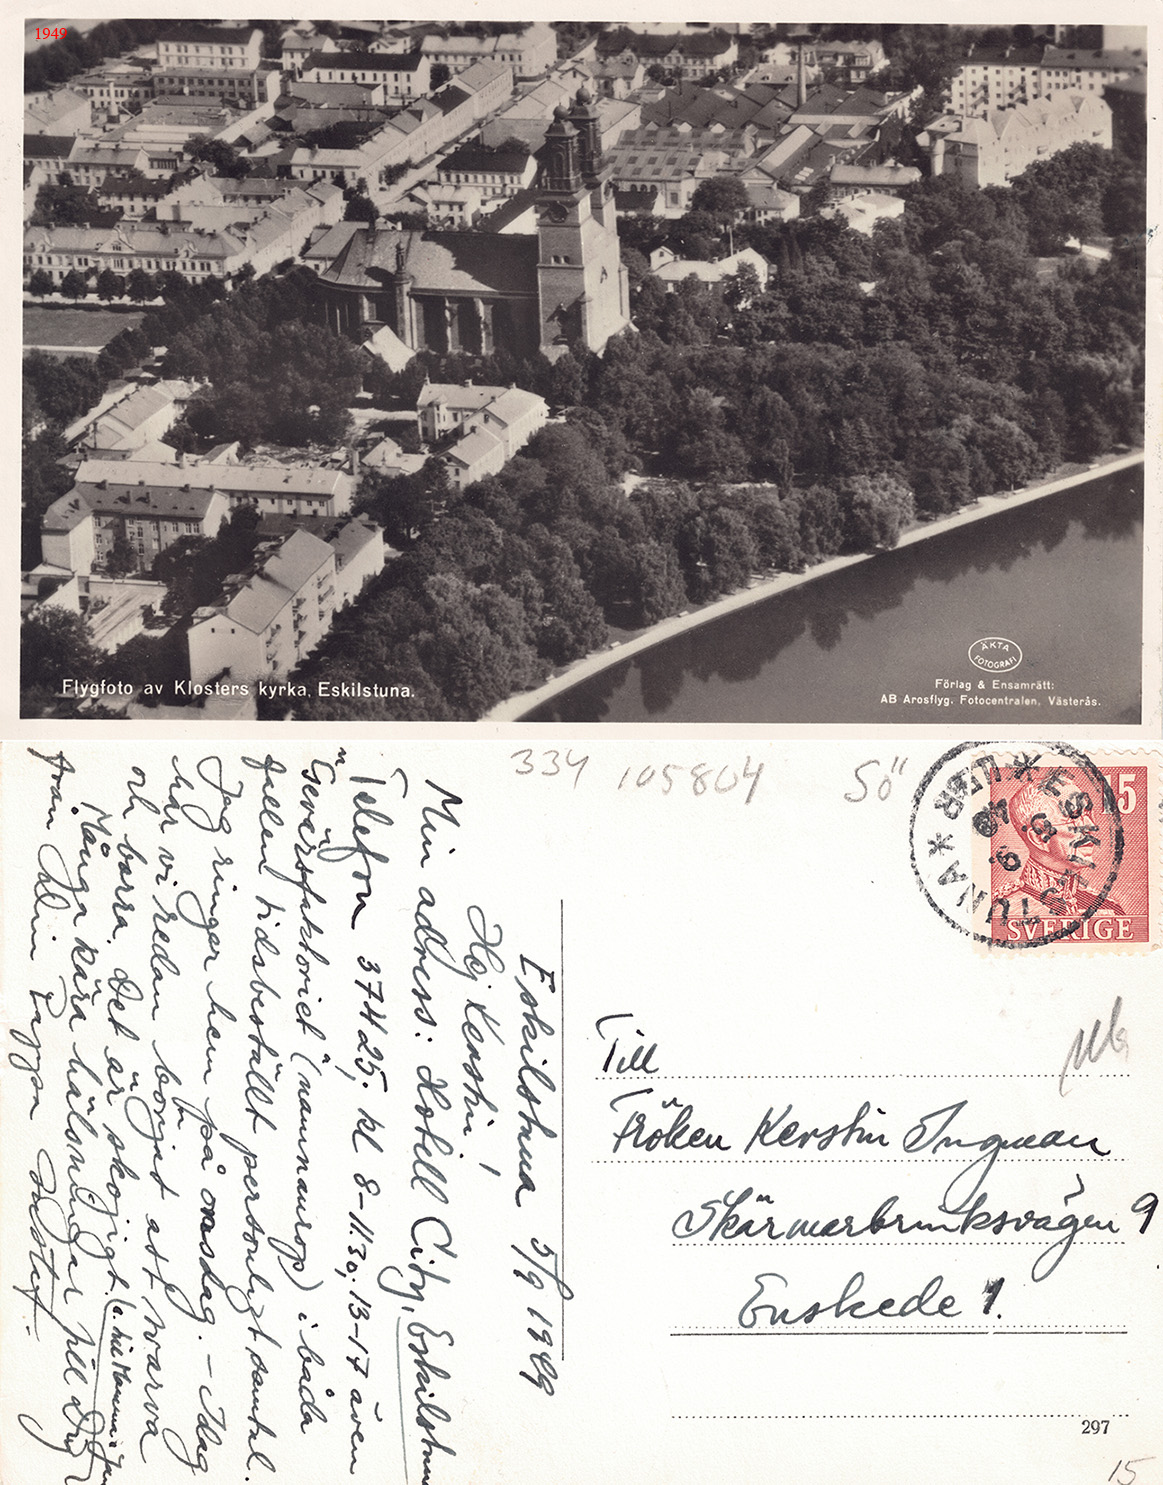 1949
Flygfoto av Klosters kyrka, Eskilstuna.
ÄKTA
FOTOGRAFI
Förlag & Ensamrätt:
AB Arosflyg. Fotocentralen, Västerås.
334 105804 Sö"
15
SVERIGE
ESKILSTUNA * LBR *
5. 9. 49
Eskilstuna 5/9 1949
Hej Kerstin!
Min adress: Hotell City, Eskilstuna
Telefon 37425; kl 8-11.30; 13-17 även
"Gevärsfaktoriet" (namnanrop) i båda
fallen tidsbeställt personligt samtal.
Jag ringer hem på onsdag. – Idag
har vi redan börjat att svarva
och borra. Det är skojigt.
Många kära hälsningar till Dig
(o. till Mamma o.
från Din Pappa Gustaf.
Till
Fröken Kerstin Ingman
Skärmarbrinksvägen 9
Enskede 1.
297
15